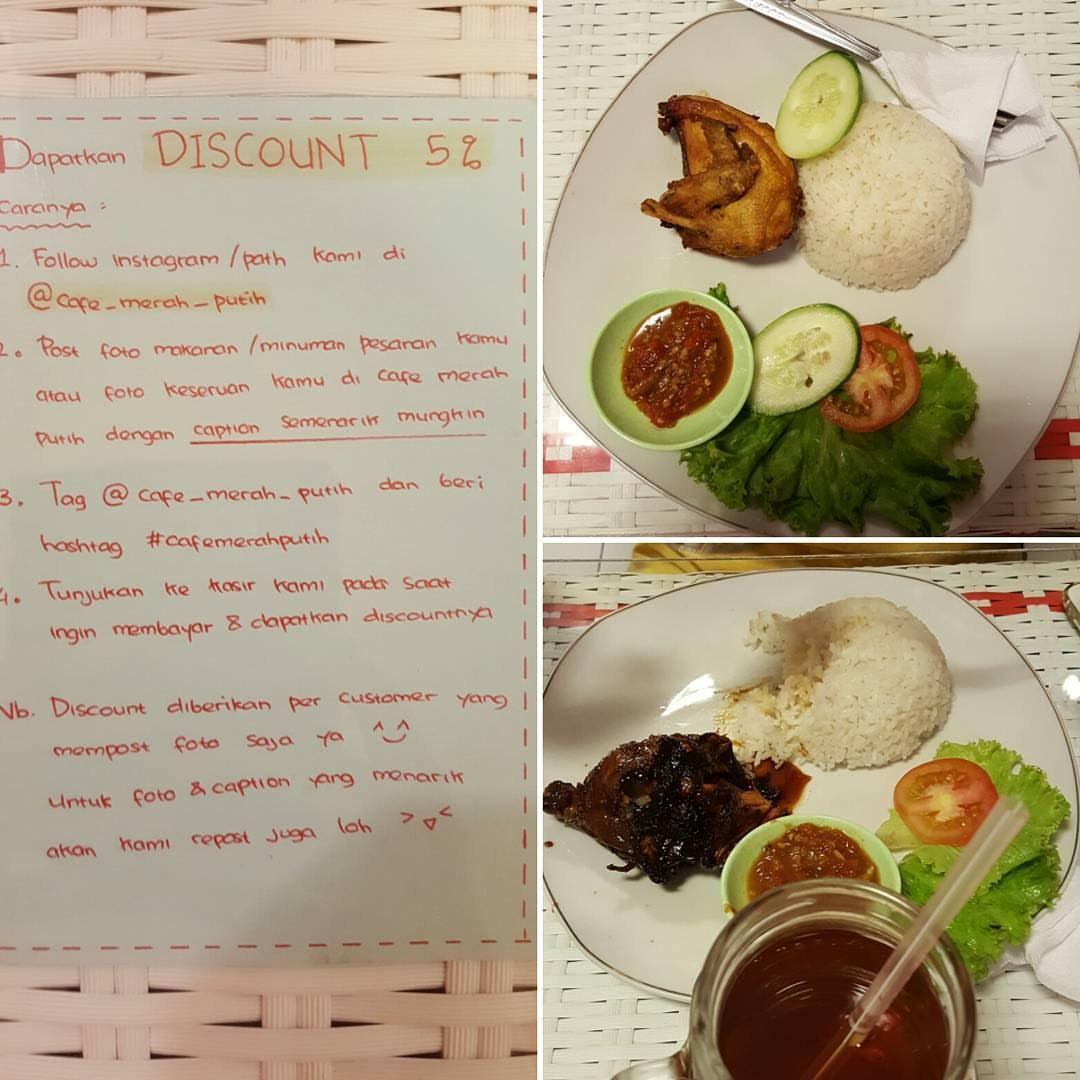 Dapatkan DISCOUNT 5%
Caranya :
1. Follow instagram / path kami di
@cafe_merah_putih
2. Post foto makanan / minuman pesanan kamu
atau foto keseruan kamu di cafe merah
putih dengan caption semenarik mungkin
3. Tag @cafe_merah_putih dan beri
hashtag #cafemerahputih
4. Tunjukan ke kasir kami pada saat
ingin membayar & dapatkan discountnya
Nb. Discount diberikan per customer yang
mempost foto saja ya ^‿^
untuk foto & caption yang menarik
akan kami repost juga loh >▽<